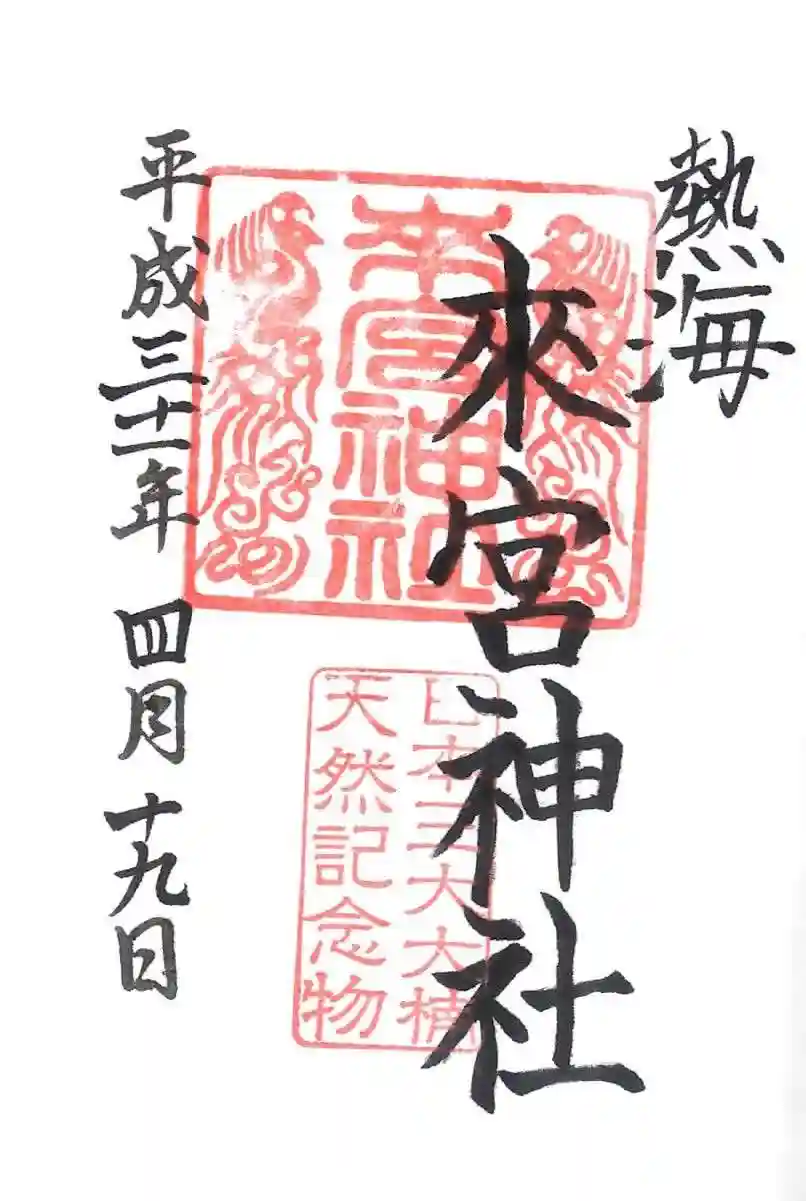 熱海
來宮神社
來宮神社
日本三大大楠
天然記念物
平成三十一年 四月 十九日